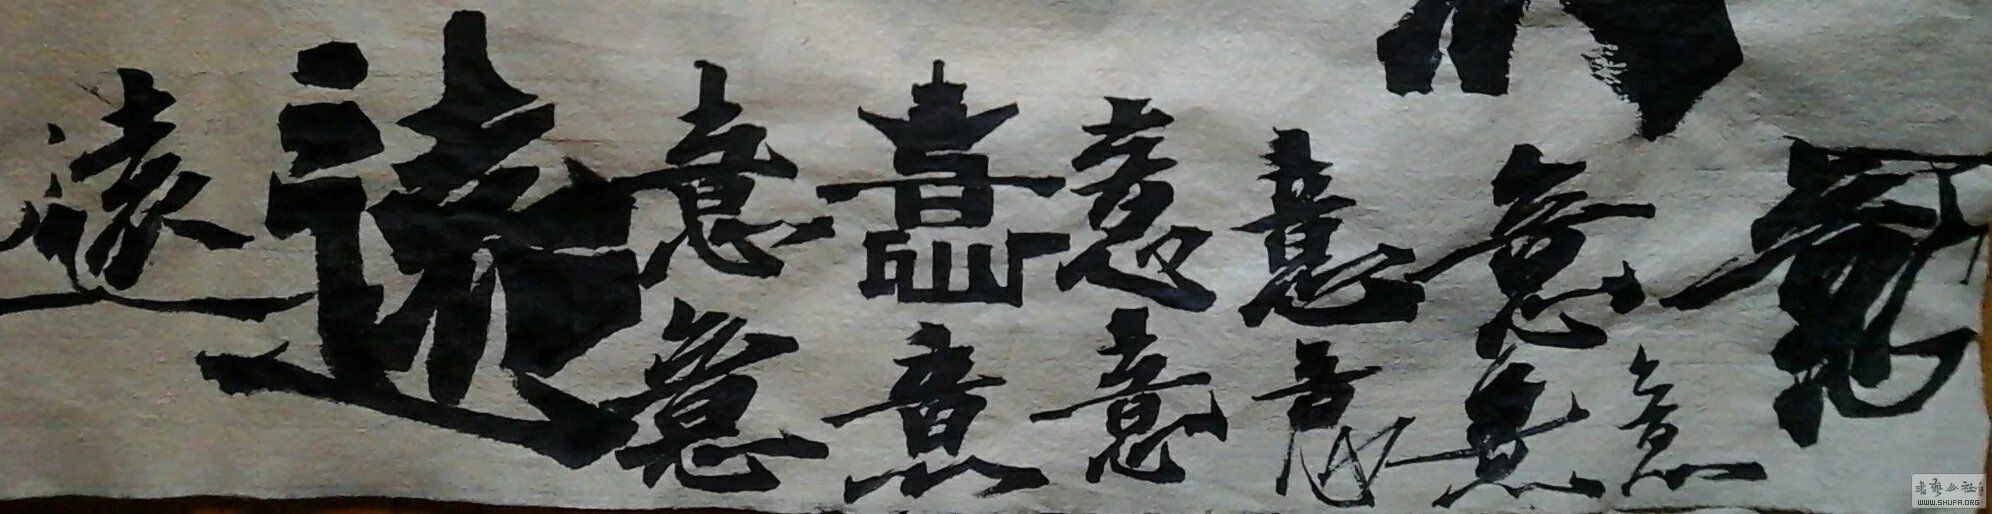 遠遠意意意意意
意意意意意意
書藝公社
WWW.SHUFA.ORG